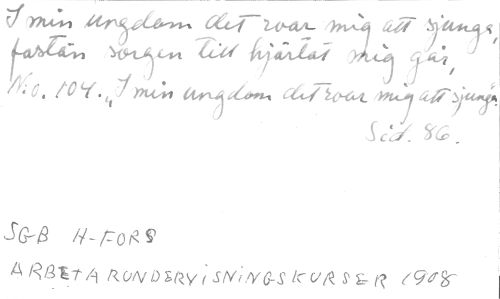 I min ungdom det roar mig att sjunga,
fastän sorgen till hjärtat mig går,
N:o. 104. „I min ungdom det roar mig att sjunga.
Sid. 86.
SGB H-FORS
ARBETARUNDERVISNINGSKURSER 1908